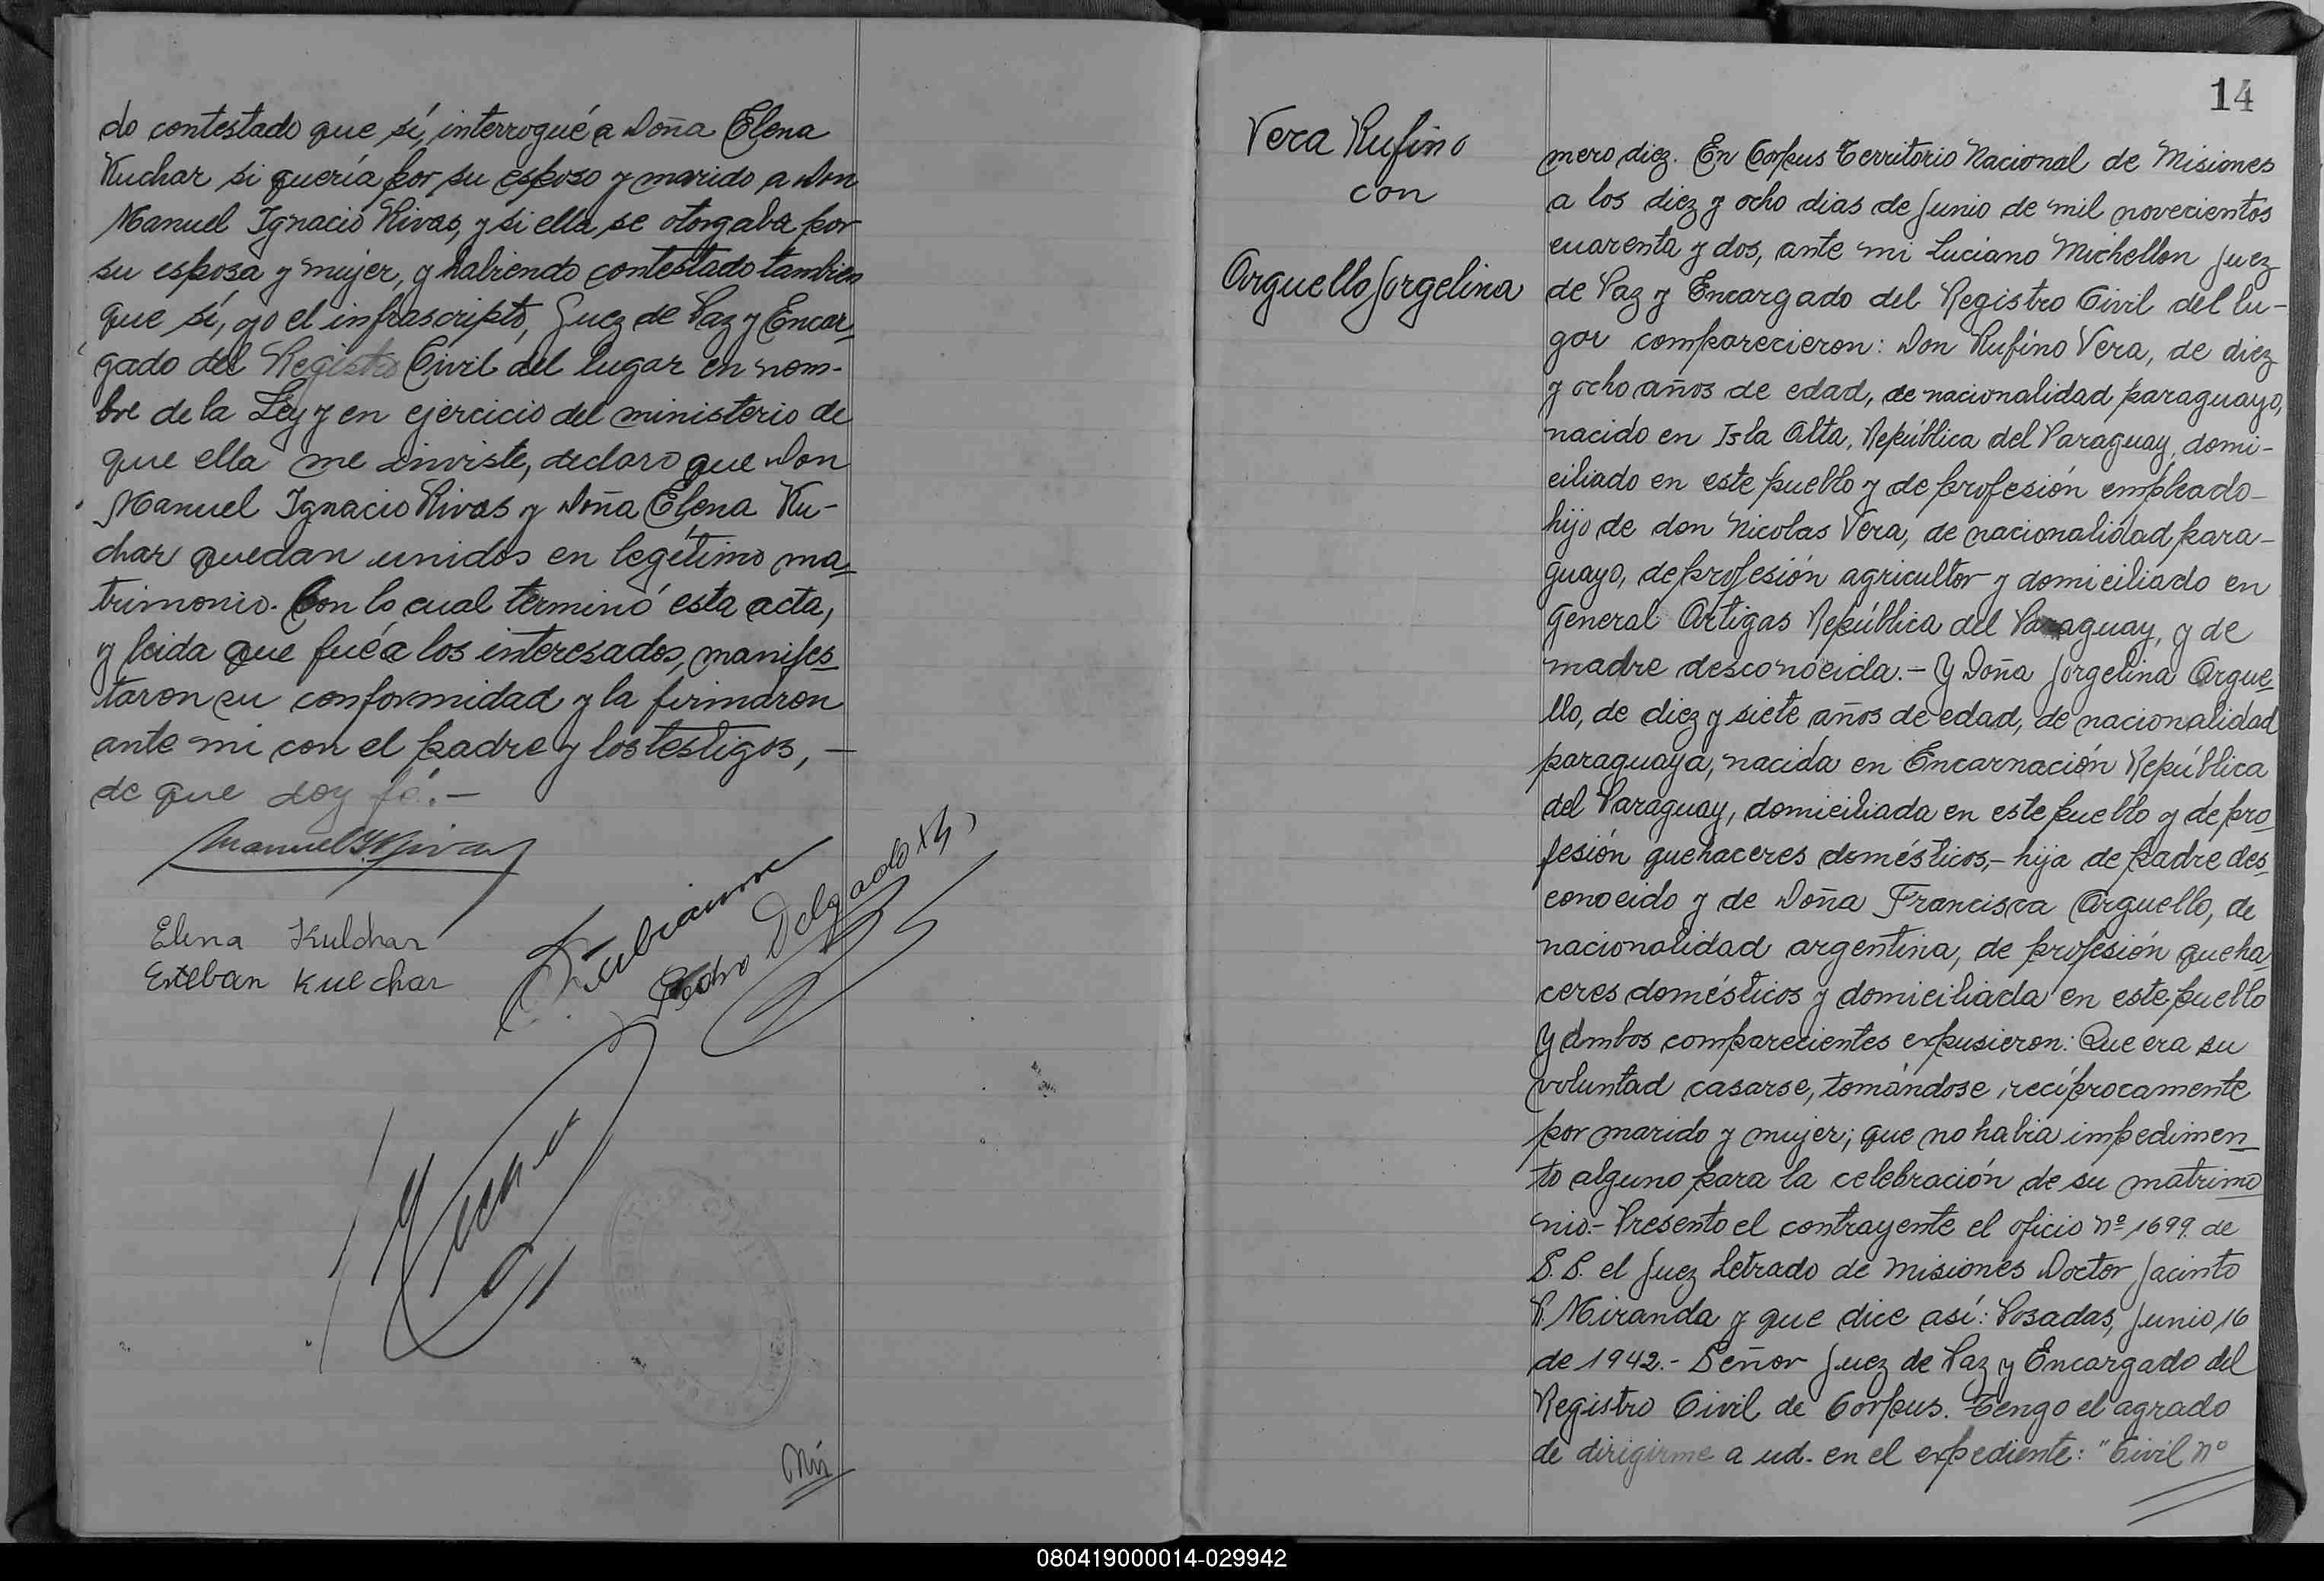 do contestado que sí, interrogué a Doña Elena
Kuchar si quería por su esposo y marido a Don
Manuel Ignacio Rivas, y si ella se otorgaba por
su esposa y mujer, y habiendo contestado tambien
que sí, yo el infrascripto, Juez de Paz y Encar-
gado del Registro Civil del lugar en nom-
bre de la Ley y en ejercicio del ministerio de
que ella me inviste, declaro que Don
Manuel Ignacio Rivas y Doña Elena Ku-
char quedan unidos en legítimo ma-
trimonio. Con lo cual terminó esta acta,
y leida que fué a los interesados, manifes-
taron su conformidad y la firmaron
ante mi con el padre y los testigos, —
de que doy fé.—
Manuel I. Rivas
Elena Kulchar
Esteban Kuechar
Pedro Delgado
Nú
14
Vera Rufino
con
Arguello Jorgelina
mero diez. En Corpus Territorio Nacional de Misiones
a los diez y ocho dias de Junio de mil novecientos
cuarenta y dos, ante mi Luciano Michellon Juez
de Paz y Encargado del Registro Civil del lu-
gar comparecieron: Don Rufino Vera, de diez
y ocho años de edad, de nacionalidad paraguayo,
nacido en Isla Alta, República del Paraguay, domi-
ciliado en este pueblo y de profesión empleado-
hijo de don Nicolas Vera, de nacionalidad para-
guayo, de profesión agricultor y domiciliado en
General Artigas República del Paraguay, y de
madre desconocida.- Y Doña Jorgelina Argue-
llo, de diez y siete años de edad, de nacionalidad
paraguaya, nacida en Encarnación República
del Paraguay, domiciliada en este pueblo y de pro-
fesión quehaceres domésticos,- hija de padre des-
conocido y de Doña Francisca Arguello, de
nacionalidad argentina, de profesión queha-
ceres domésticos y domiciliada en este pueblo
Y ambos comparecientes expusieron: Que era su
voluntad casarse, tomándose recíprocamente
por marido y mujer; que no habia impedimen-
to alguno para la celebración de su matrimo-
nio.- Presento el contrayente el oficio Nº 1699 de
S.S. el Juez Letrado de Misiones Doctor Jacinto
R. Miranda y que dice así: Posadas, Junio 16
de 1942.- Señor Juez de Paz y Encargado del
Registro Civil de Corpus. Tengo el agrado
de dirigirme a ud. en el expediente: "Civil Nº
080419000014-029942